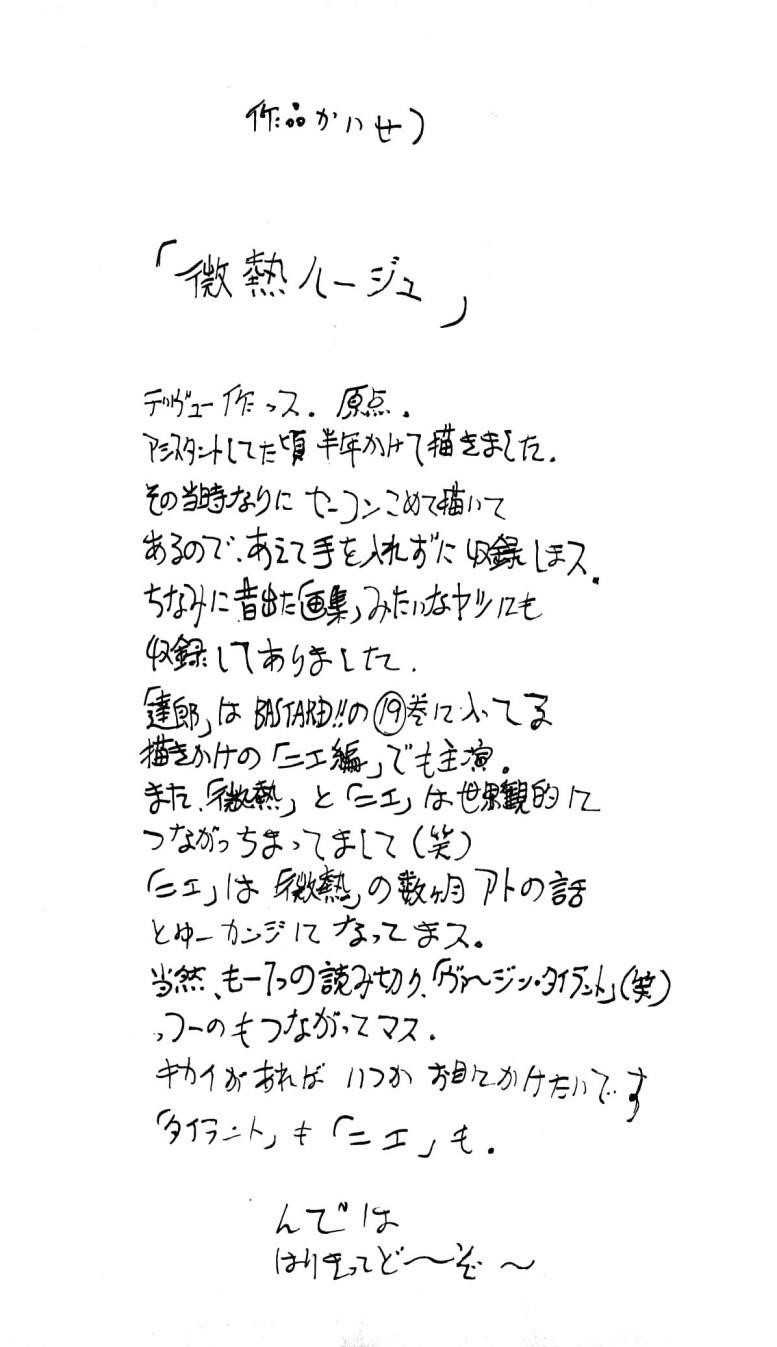 作品かいせつ
「微熱ルージュ」
デヴュー作っス。原点。
アシスタントしてた頃 半年かけて描きました。
その当時なりに せーコンこめて描いて
あるので、あえて手を入れずに収録しまス。
ちなみに昔出た「画集」みたいなヤツにも
収録してありました。
「達郎」は BASTARD!!の⑲巻に入ってる
描きかけの「ニエ編」でも主演。
また、「微熱」と「ニエ」は世界観的に
つながっちまってまして(笑)
「ニエ」は「微熱」の数ヶ月アトの話
とゆーカンジになってまス。
当然、もー1つの読み切り、「ヴァージン・タイラント」(笑)
っつーのもつながってマス。
キカイがあれば いつか お目にかけたいです
「タイラント」も「ニエ」も。
んでは
はりきってど〜ぞ〜